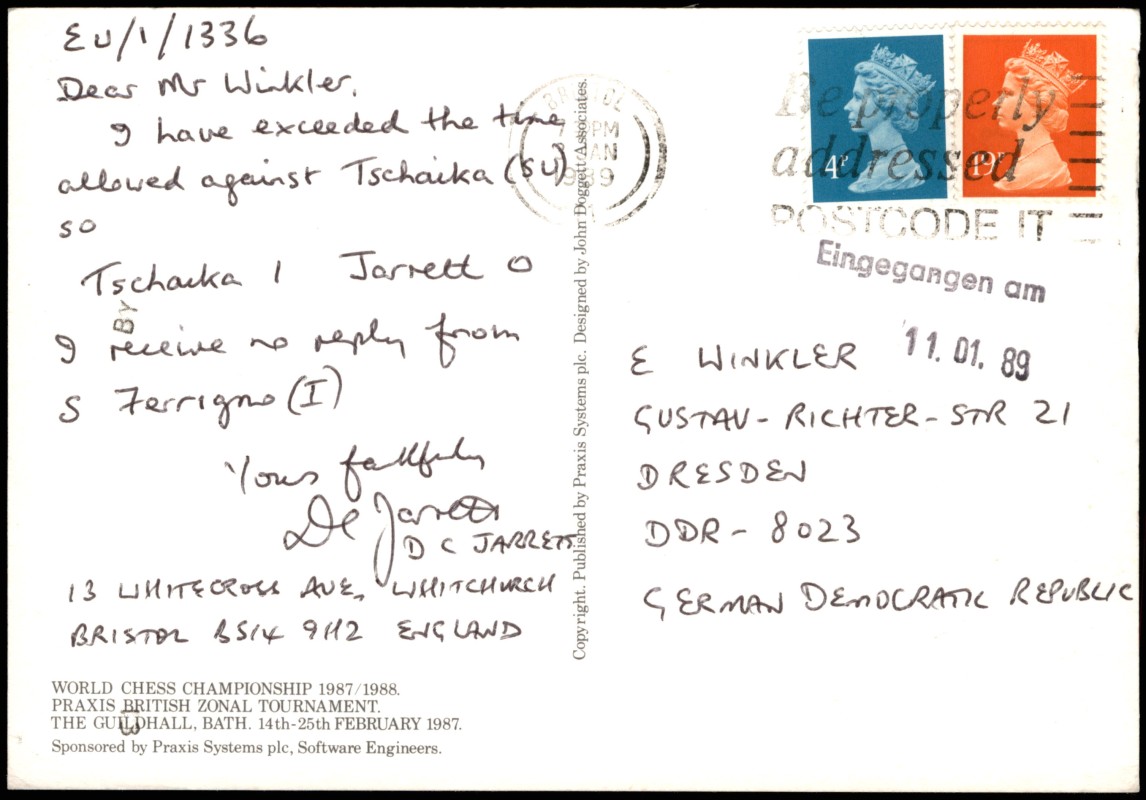 EU/1/1336
Dear Mr Winkler,
I have exceeded the time
allowed against Tschaika (SU)
so
Tschaika 1 Jarrett 0
I receive no reply from
S Ferrigno (I)
Yours faithfully
DC Jarrett
D C JARRETT
13 WHITECROSS AVE, WHITCHURCH
BRISTOL BS14 9HZ ENGLAND
WORLD CHESS CHAMPIONSHIP 1987/1988.
PRAXIS BRITISH ZONAL TOURNAMENT.
THE GUILDHALL, BATH. 14th-25th FEBRUARY 1987.
Sponsored by Praxis Systems plc, Software Engineers.
Copyright. Published by Praxis Systems plc. Designed by John Doggett Associates.
BRISTOL
PM
JAN
1989
4P
19P
Be properly
addressed
POSTCODE IT
Eingegangen am
11. 01. 89
E WINKLER
GUSTAV-RICHTER-STR 21
DRESDEN
DDR-8023
GERMAN DEMOCRATIC REPUBLIC
BY